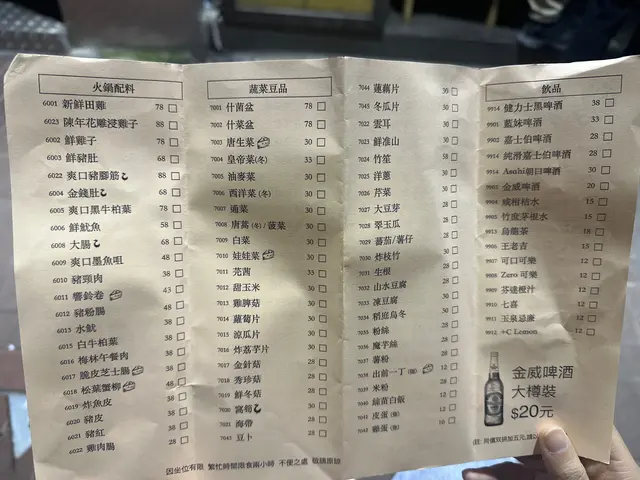 火鍋配料
6001 新鮮田雞 78
6023 陳年花雕浸雞子 88
6002 鮮雞子 78
6003 鮮豬肚 68
6022 爽口豬腳筋 88
6004 金錢肚 68
6005 爽口黑牛柏葉 68
6006 鮮魷魚 58
6008 大腸 68
6009 爽口墨魚咀 48
6010 豬頸肉 48
6011 響鈴卷 43
6012 豬粉腸 48
6013 水魷 38
6015 白牛柏葉 38
6016 梅林午餐肉 38
6017 脆皮芝士腸 38
6018 松葉蟹柳 38
6019 炸魚皮 38
6020 豬皮 38
6021 豬紅 28
6022 雞肉腸 28
蔬菜豆品
7001 什菌盆 78
7002 什菜盆 78
7003 唐生菜 30
7004 皇帝菜(冬) 33
7005 油麥菜 30
7006 西洋菜(冬) 30
7007 通菜 30
7008 唐蒿(冬)/菠菜 30
7009 白菜 30
7010 娃娃菜 30
7011 芫茜 33
7012 甜玉米 30
7013 雞脾菇 30
7014 蘿蔔片 30
7015 涼瓜片 30
7016 炸荔芋片 30
7017 金針菇 28
7018 秀珍菇 28
7019 鮮冬菇 28
7020 窩筍 30
7021 海帶 28
7043 豆卜 28
7044 蓮藕片 30
7045 冬瓜片 30
7022 雲耳 30
7023 鮮淮山 30
7024 竹笙 58
7025 洋蔥 30
7026 芹菜 30
7027 大豆芽 28
7028 翠玉瓜 30
7029 蕃茄/薯仔 28
7030 炸枝竹 30
7031 生根 28
7032 山水豆腐 28
7033 凍豆腐 28
7034 稻庭烏冬 30
7035 粉絲 28
7036 魔芋絲 28
7037 薯粉 28
7038 出前一丁 12
7039 米粉 28
7040 絲苗白飯 12
7041 皮蛋(隻) 12
7042 雞蛋(隻) 10
飲品
9914 健力士黑啤酒 38
9901 藍妹啤酒 33
9902 嘉士伯啤酒 28
9914 純滑嘉士伯啤酒 28
9914 Asahi朝日啤酒 28
9903 金威啤酒 20
9904 咸柑桔水 15
9905 竹庶茅根水 15
9813 烏龍茶 18
9906 王老吉 15
9907 可口可樂 12
9908 Zero 可樂 12
9909 芬達橙汁 12
9910 七喜 12
9911 玉泉忌廉 12
9912 +C Lemon 12
金威啤酒
大樽裝
$20元
因坐位有限 繁忙時間限食兩小時 不便之處 敬請原諒